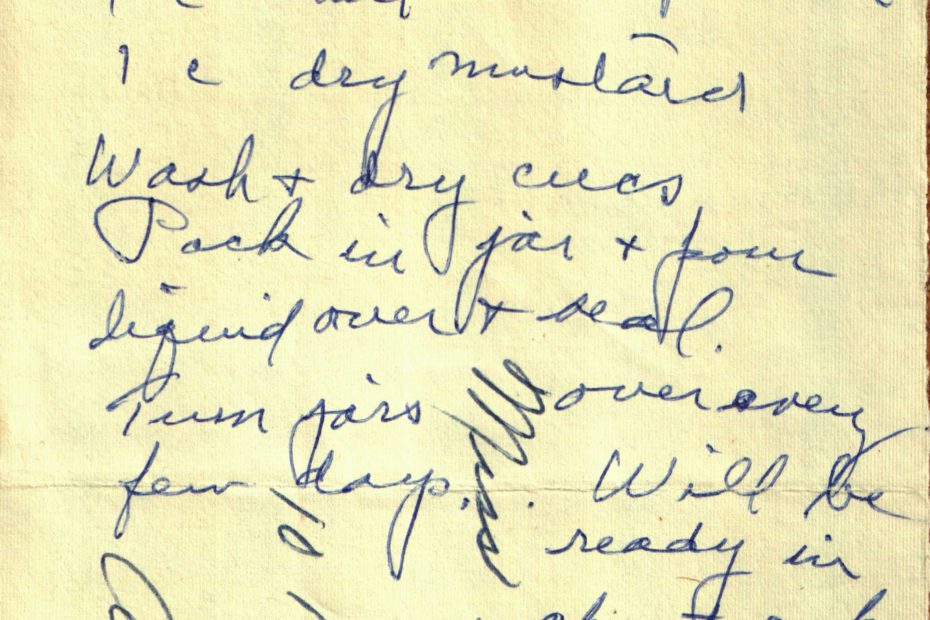 1 c dry mustard
Wash + dry cucs
Pack in jar + pour
liquid over + seal.
Turn jars over every
few days. Will be
ready in